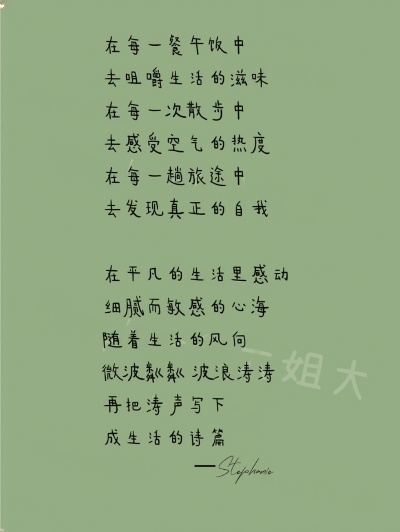 在每一餐午饭中
去咀嚼生活的滋味
在每一次散步中
去感受空气的热度
在每一趟旅途中
去发现真正的自我
在平凡的生活里感动
细腻而敏感的心海
随着生活的风向
微波粼粼 波浪涛涛
再把涛声写下
成生活的诗篇
—Stephanie
一姐大